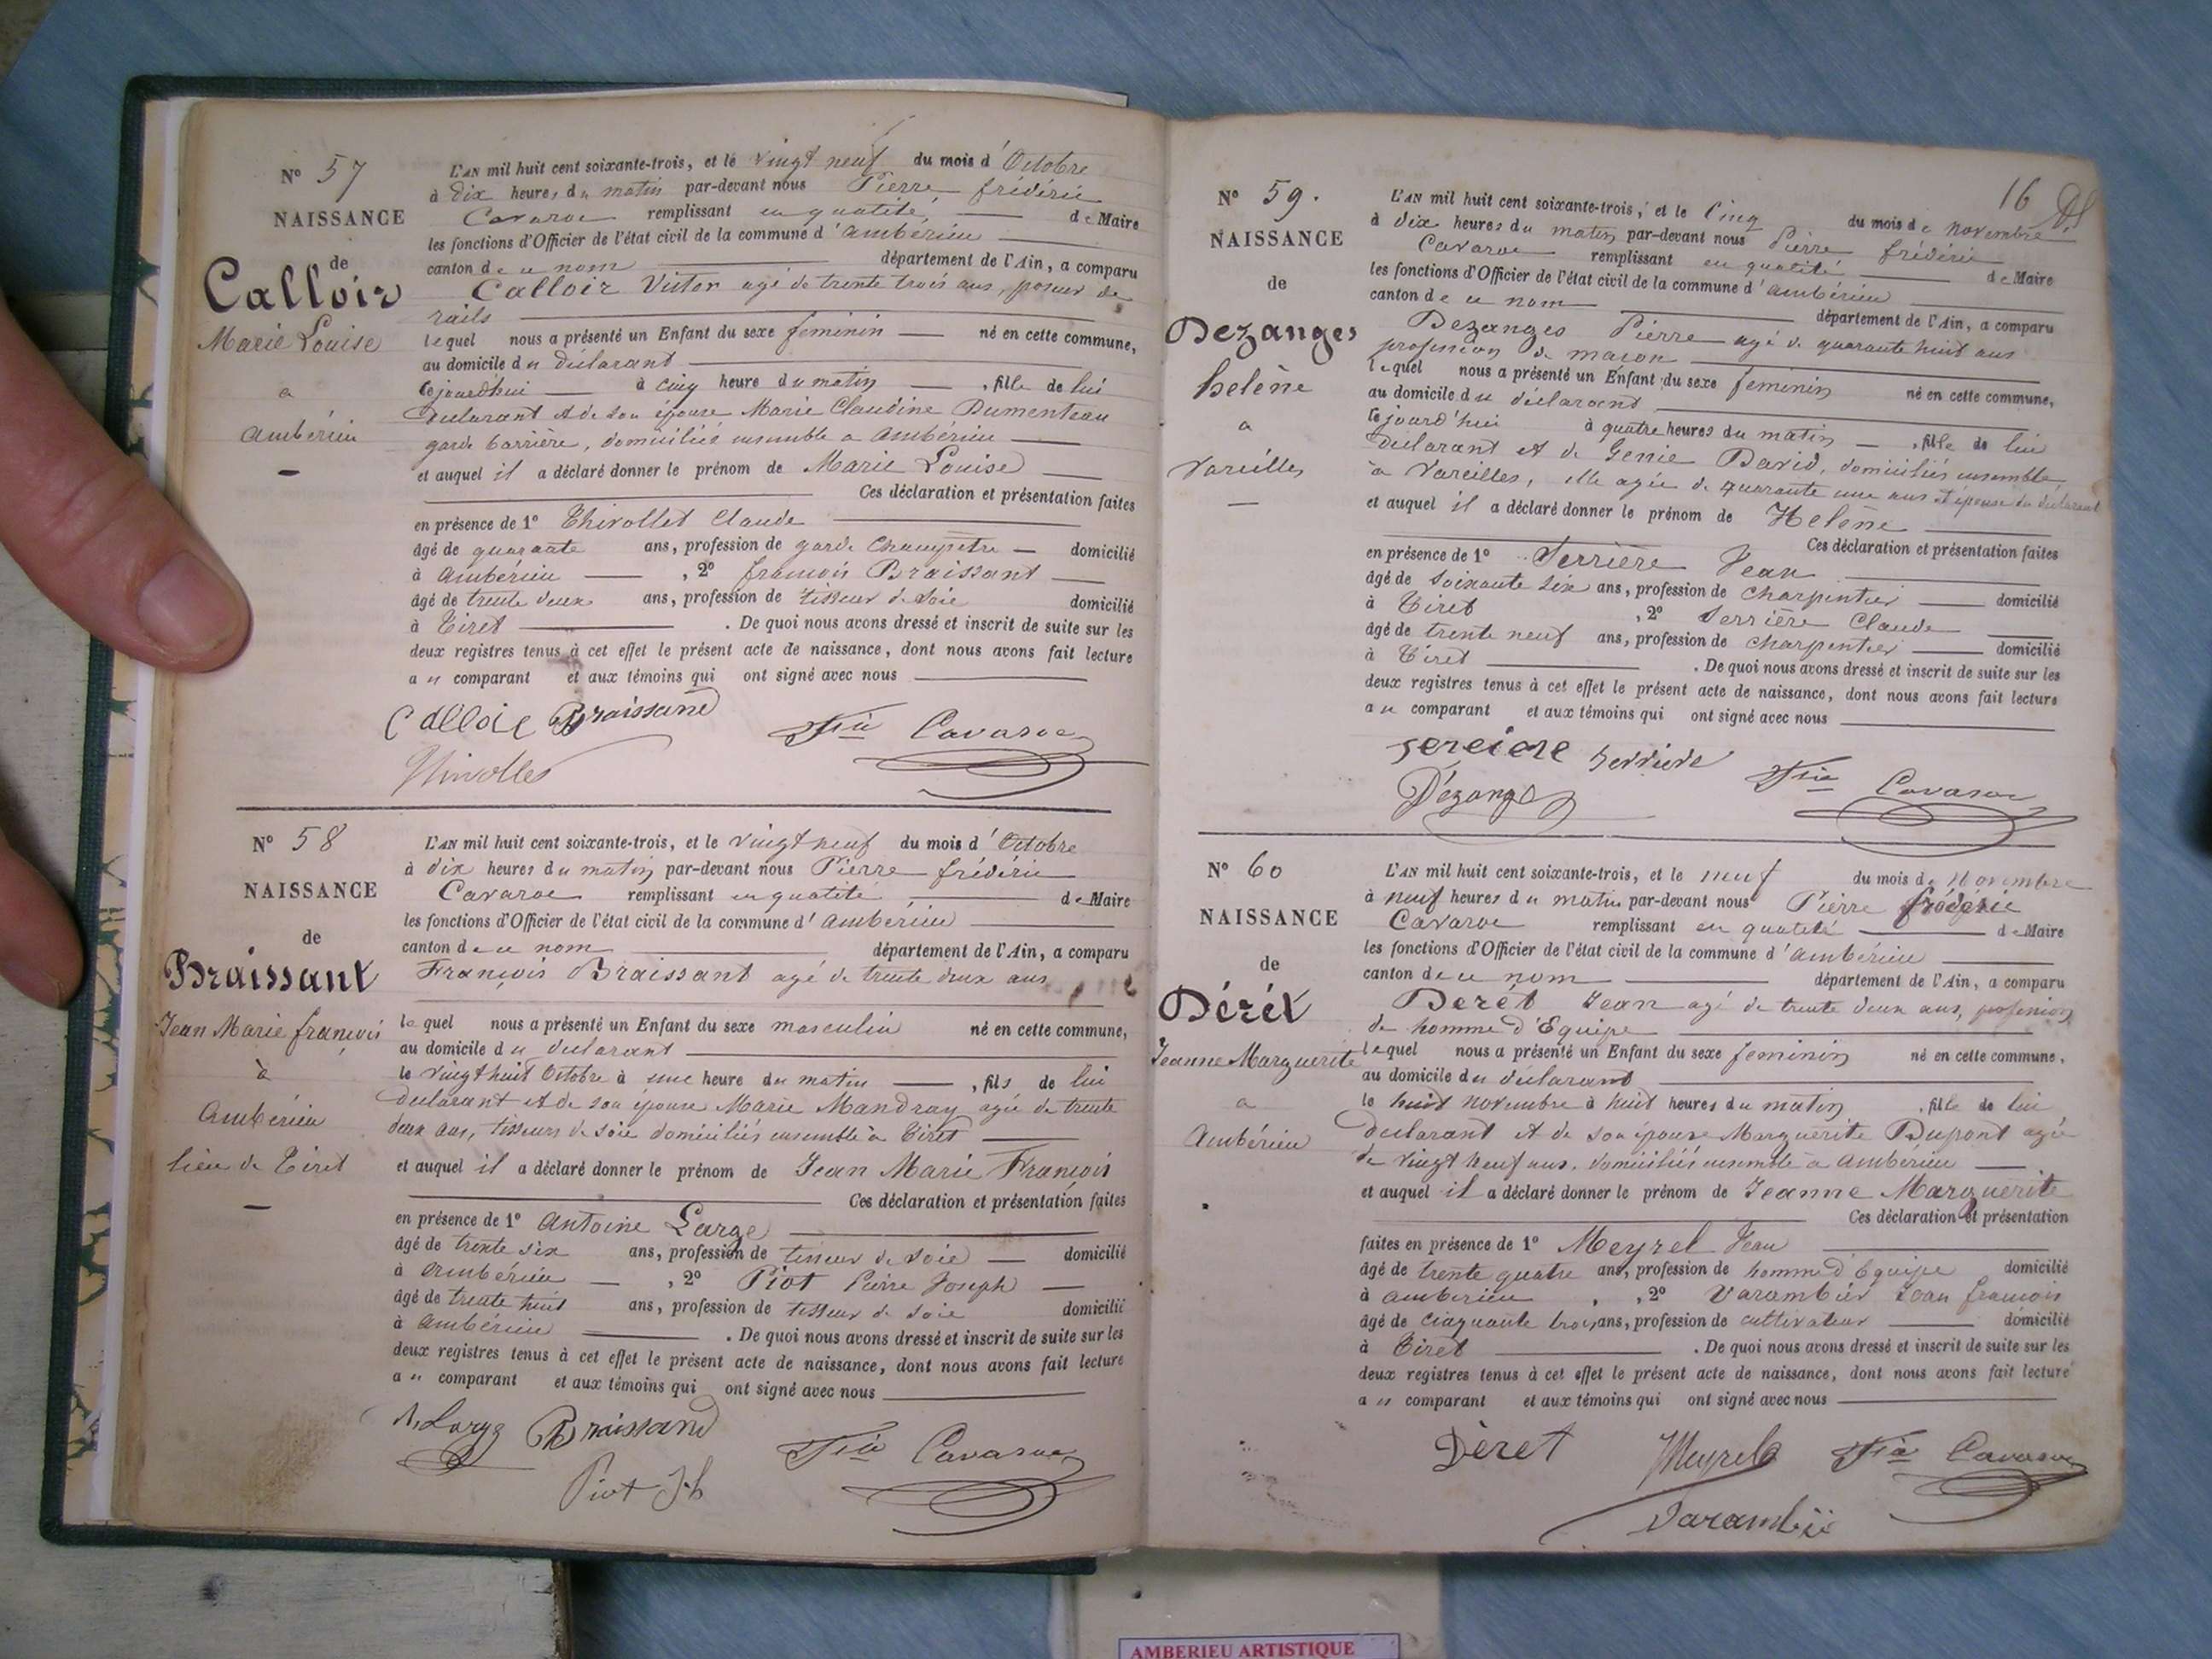 N° 57
NAISSANCE
de
Calloir
Marie Louise
a
Ambérieu
L'AN mil huit cent soixante-trois, et le vingt neuf du mois d'Octobre
à dix heures du matin par-devant nous Pierre frédéric
Cavaroc remplissant en qualité de Maire
les fonctions d'Officier de l'état civil de la commune d'ambérieu
canton de ce nom département de l'Ain, a comparu
Calloir Victor agé de trente trois ans, poseur de
rails
lequel nous a présenté un Enfant du sexe feminin né en cette commune,
au domicile du déclarant
cejourdhui à cinq heure du matin, fille de lui
déclarant et de son épouse Marie Claudine Dumenteau
garde barrière, domiciliés ensemble a ambérieu
et auquel il a déclaré donner le prénom de Marie Louise
Ces déclaration et présentation faites
en présence de 1° Thivollet Claude
âgé de quarante ans, profession de garde champetre domicilié
à ambérieu, 2° françois Braissant
âgé de trente deux ans, profession de tisseur de soie domicilié
à Tiret. De quoi nous avons dressé et inscrit de suite sur les
deux registres tenus à cet effet le présent acte de naissance, dont nous avons fait lecture
au comparant et aux témoins qui ont signé avec nous
Calloir Braissand Cavaroc
N° 58
NAISSANCE
de
Braissant
Jean Marie françois
à
Ambérieu
lieu de Tiret
L'AN mil huit cent soixante-trois, et le vingt neuf du mois d'Octobre
à dix heures du matin par-devant nous Pierre frédéric
Cavaroc remplissant en qualité de Maire
les fonctions d'Officier de l'état civil de la commune d'ambérieu
canton de ce nom département de l'Ain, a comparu
François Braissant agé de trente deux ans
lequel nous a présenté un Enfant du sexe masculin né en cette commune,
au domicile du déclarant
le vingt huit Octobre à une heure du matin, fils de lui
déclarant et de son épouse Marie Mandray agée de trente
deux ans, tisseurs de soie domiciliés ensemble à Tiret
et auquel il a déclaré donner le prénom de Jean Marie François
Ces déclaration et présentation faites
en présence de 1° Antoine Large
âgé de trente six ans, profession de tisseur de soie domicilié
à ambérieu, 2° Piot Pierre Joseph
âgé de trente huit ans, profession de tisseur de soie domicilié
à ambérieu. De quoi nous avons dressé et inscrit de suite sur les
deux registres tenus à cet effet le présent acte de naissance, dont nous avons fait lecture
au comparant et aux témoins qui ont signé avec nous
Large Braissand Cavaroc
Piot Jh
16
N° 59.
NAISSANCE
de
Dezanges
helène
a
Vareilles
L'AN mil huit cent soixante-trois, et le Cinq du mois de novembre
à dix heures du matin par-devant nous Pierre frédéric
Cavaroc remplissant en qualité de Maire
les fonctions d'Officier de l'état civil de la commune d'ambérieu
canton de ce nom département de l'Ain, a comparu
Dezanges Pierre agé de quarante huit ans
profession de macon
lequel nous a présenté un Enfant du sexe feminin né en cette commune,
au domicile du déclarant
cejourd'hui à quatre heures du matin, fille de lui
déclarant et de Genie David, domiciliés ensemble
à Vareilles, elle agée de quarante une ans et épouse du déclarant
et auquel il a déclaré donner le prénom de Helène
Ces déclaration et présentation faites
en présence de 1° Serrière Jean
âgé de soixante six ans, profession de charpentier domicilié
à Tiret, 2° Serrière Claude
âgé de trente neuf ans, profession de charpentier domicilié
à Tiret. De quoi nous avons dressé et inscrit de suite sur les
deux registres tenus à cet effet le présent acte de naissance, dont nous avons fait lecture
au comparant et aux témoins qui ont signé avec nous
Cavaroc
N° 60
NAISSANCE
de
Dérét
Jeanne Marguerite
a
Ambérieu
L'AN mil huit cent soixante-trois, et le neuf du mois de Novembre
à neuf heures du matin par-devant nous Pierre fréderic
Cavaroc remplissant en qualité de Maire
les fonctions d'Officier de l'état civil de la commune d'ambérieu
canton de ce nom département de l'Ain, a comparu
Derét Jean agé de trente deux ans, profession
de homme d'Equipe
lequel nous a présenté un Enfant du sexe feminin né en cette commune,
au domicile du déclarant
le huit novembre à huit heures du matin, fille de lui
déclarant et de son épouse Marguerite Dupont agée
de vingt neuf ans, domiciliés ensemble a ambérieu
et auquel il a déclaré donner le prénom de Jeanne Marguerite
Ces déclaration et présentation
faites en présence de 1° Meyrel Jean
âgé de trente quatre ans, profession de homme d'Equipe domicilié
à amberieu, 2° Varambier Jean françois
âgé de cinquante trois ans, profession de cultivateur domicilié
à Tiret. De quoi nous avons dressé et inscrit de suite sur les
deux registres tenus à cet effet le présent acte de naissance, dont nous avons fait lecture
au comparant et aux témoins qui ont signé avec nous
Déret Meyrel Cavaroc
AMBERIEU ARTISTIQUE